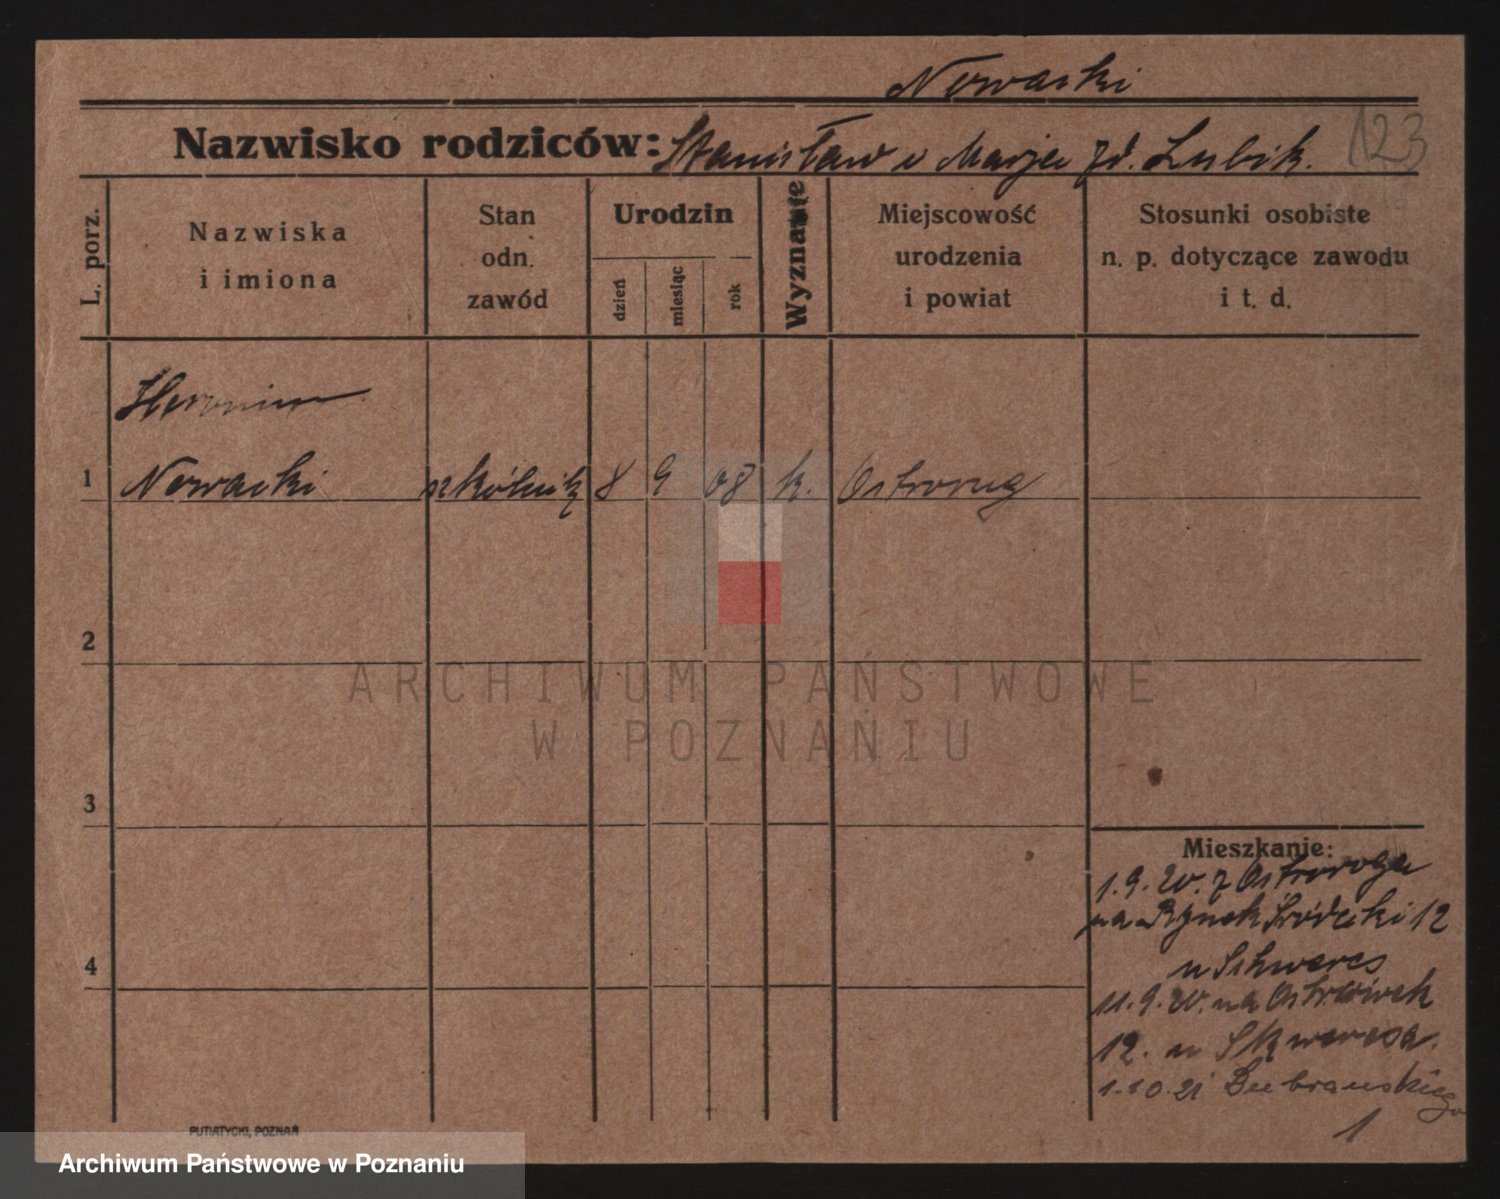 Nowacki
Nazwisko rodziców: Stanisław u Marja zd. Lubik.
123
L. porz.
Nazwiska
i imiona
Stan
odn.
zawód
Urodzin
dzień
miesiąc
rok
Wyznanie
Miejscowość
urodzenia
i powiat
Stosunki osobiste
n. p. dotyczące zawodu
i t. d.
Heronim
1 Nowacki szkólnik 8 9 08 k. Ostroróg
2
3
4
Mieszkanie:
1.9.20. z Ostroroga
na Rynek Śródecki 12
u
11.9.20. na Ostrówek
12. u
1.10.21 Lubrańskiego
1
PUTIATYCKI, POZNAŃ
ARCHIWUM PAŃSTWOWE
W POZNANIU
Archiwum Państwowe w Poznaniu